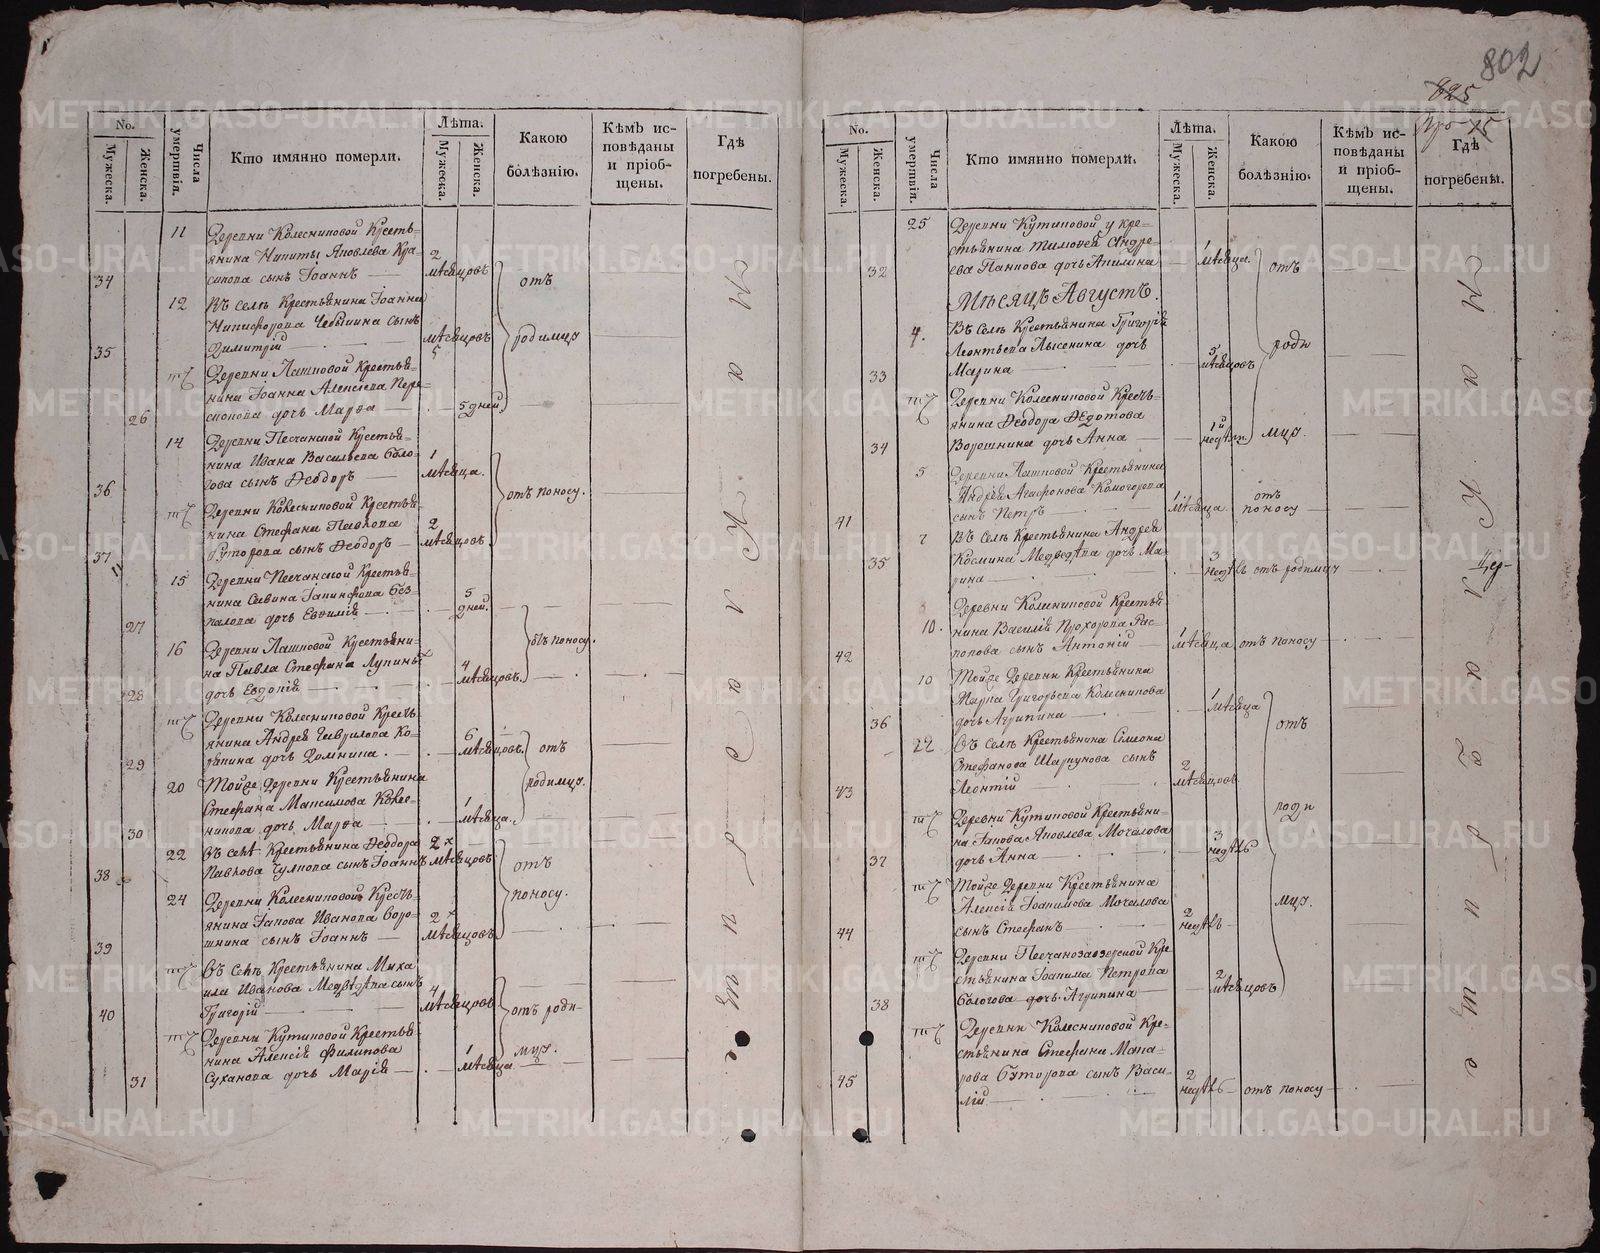 802
825
No.
Мужеска.
Женска.
Числа умертвія.
Кто имянно померли.
Лѣта.
Мужеска.
Женска.
Какою болѣзнію.
Кѣмъ исповѣданы и пріобщены.
Гдѣ погребены.
34
11
Деревни Колесниковой Кресть=
янина Никиты Яковлева
сынъ Іоаннъ
2
мѣсяцовъ
отъ
родимца
35
12
Въ селѣ Крестьянина Іоанна
Никифорова Чебыкина сынъ
Димитрій
мѣсяцовъ
5
26
тч
Деревни Лашковой Крестья=
нина Іоанна Алексѣева
дочь Марѳа
5 дней
36
14
Деревни Песчанской Крестья=
нина Ивана Васильева Боло=
гова сынъ Ѳеодоръ
1
мѣсяца.
отъ поносу.
37
тч
Деревни Колесниковой Крестья=
нина Стефана Павлова
Буторова сынъ Ѳеодоръ
2
мѣсяцовъ.
27
15
Деревни Песчанской Крестья=
нина Савина
дочь Евфимія
5
дней.
отъ поносу.
28
16
Деревни Лашковой Крестьяни=
на Павла Стефана Лупина
дочь Евдокія
4
мѣсяцовъ.
29
тч
Деревни Колесниковой Кресть
янина Андрея Гаврилова
дочь Домнина.
6
мѣсяцовъ.
отъ
родимца.
30
20
Тойже Деревни Крестьянина
Стефана Максимова Колес=
никова дочь Марѳа
1
мѣсяца.
38
22
Въ селѣ Крестьянина Ѳеодора
Павлова Чулкова сынъ Іоаннъ
2
мѣсяцовъ
отъ
поносу.
39
24
Деревни Колесниковой Кресть
янина Іакова Иванова Воро=
шнина сынъ Іоаннъ
2
мѣсяцовъ
40
тч
Въ селѣ Крестьянина Миха
ила Иванова Медвѣдева сынъ
Григорій
4
мѣсяцовъ
отъ роди-
мца.
31
тч
Деревни Кутиковой Крестья=
нина Алексія Филипова
Суханова дочь Марія
1
мѣсяца
На кладбище
No.
Мужеска.
Женска.
Числа умертвія.
Кто имянно померли.
Лѣта.
Мужеска.
Женска.
Какою болѣзнію.
Кѣмъ исповѣданы и пріобщены.
Гдѣ погребены.
32
25
Деревни Кутиковой у кре=
стьянина Тимофея Андре
ева Панкова дочь Акилина
1
мѣсяца.
отъ
роди
мца.
Мѣсяцъ Августъ.
33
4.
Въ селѣ Крестьянина Григорія
Леонтьева Лысенина дочь
Марина
5
мѣсяцовъ
34
тч
Деревни Колесниковой Кресть=
янина Ѳеодора Ѳедотова
Ворошнина дочь Анна
41
5
Деревни Лашковой Крестьянина
Андрея Агафонова Комогорова
сынъ Петръ
1
мѣсяца
отъ
поносу
35
7
Въ селѣ Крестьянина Андрея
Космина Медведева дочь Ма=
рина
3
недѣль
отъ родимца
42
10.
Деревни Колесниковой Крестья
нина Василія Прохорова Рас=
попова сынъ Антоній
1
мѣсяца
отъ поносу
36
10
Тойже Деревни Крестьянина
Марка Григорьева Колесникова
дочь Агрипина
1
мѣсяца
отъ
роди
мца.
43
22
Въ селѣ Крестьянина Симеона
Стефанова Шаркунова сынъ
Леонтій
2
мѣсяцовъ
37
тч
Деревни Кутиковой Крестьяни=
на Іакова Яковлева Мочалова
дочь Анна
3
недѣль
44
тч
Тойже Деревни Крестьянина
Алексія Іоакимова Мочалова
сынъ Стефанъ
2
недѣль
38
тч
Деревни Песчанозаозерской Кре
стьянина Іоакима Петрова
Бологова дочь Агрипина
2
мѣсяцовъ
45
тч
Деревни Колесниковой Кре=
стьянина Стефана Мака=
рова Буторова сынъ Васи=
лій
2
недѣль
отъ поносу
На кладбище
METRIKI.GASO-URAL.RU